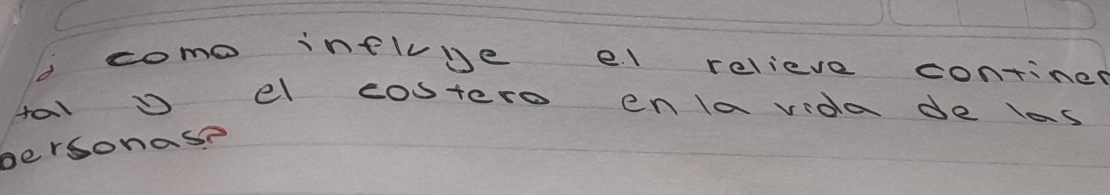 ¿como influye el relieve continen
tal y el costero en la vida de las
personas?